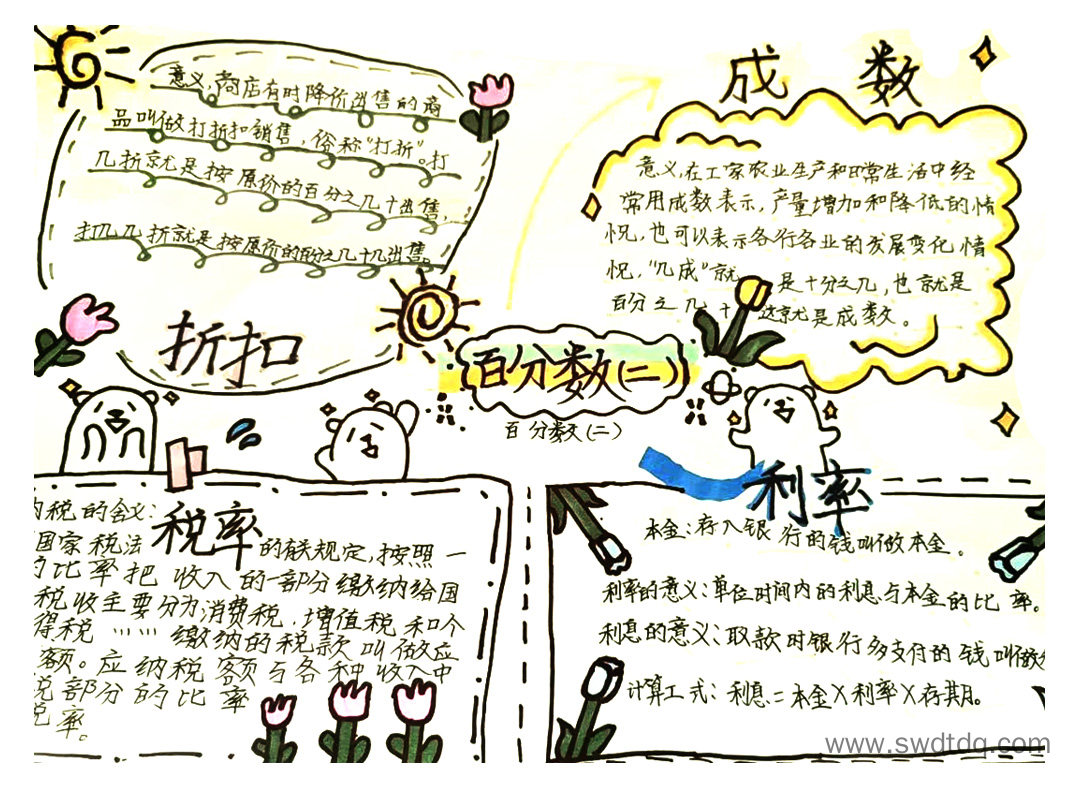 意义,商店有时降价出售的商
品叫做打折扣销售,俗称"打折"。打
几折就是按原价的百分之几十出售,
打几几折就是按原价的百分之几十几出售。
折扣
成数
意义,在工家农业生产和日常生活中经
常用成数表示,产量增加和降低的情
况,也可以表示各行各业的发展变化情
况,"几成"就是十分之几,也就是
百分之几十 这就是成数。
百分数(二)
百分数(二)
税率
内税的含义:
国家税法 的有关规定,按照一
比率把收入的一部分缴纳给国
税收主要分为消费税,增值税和个
得税……缴纳的税款叫做应
额。应纳税额与各种收入中
税部分的比率
税率。
利率
本金:存入银行的钱叫做本金。
利率的意义:单位时间内的利息与本金的比率。
利息的意义:取款时银行多支付的钱叫做
计算工式:利息=本金×利率×存期。
www.swdtdq.com